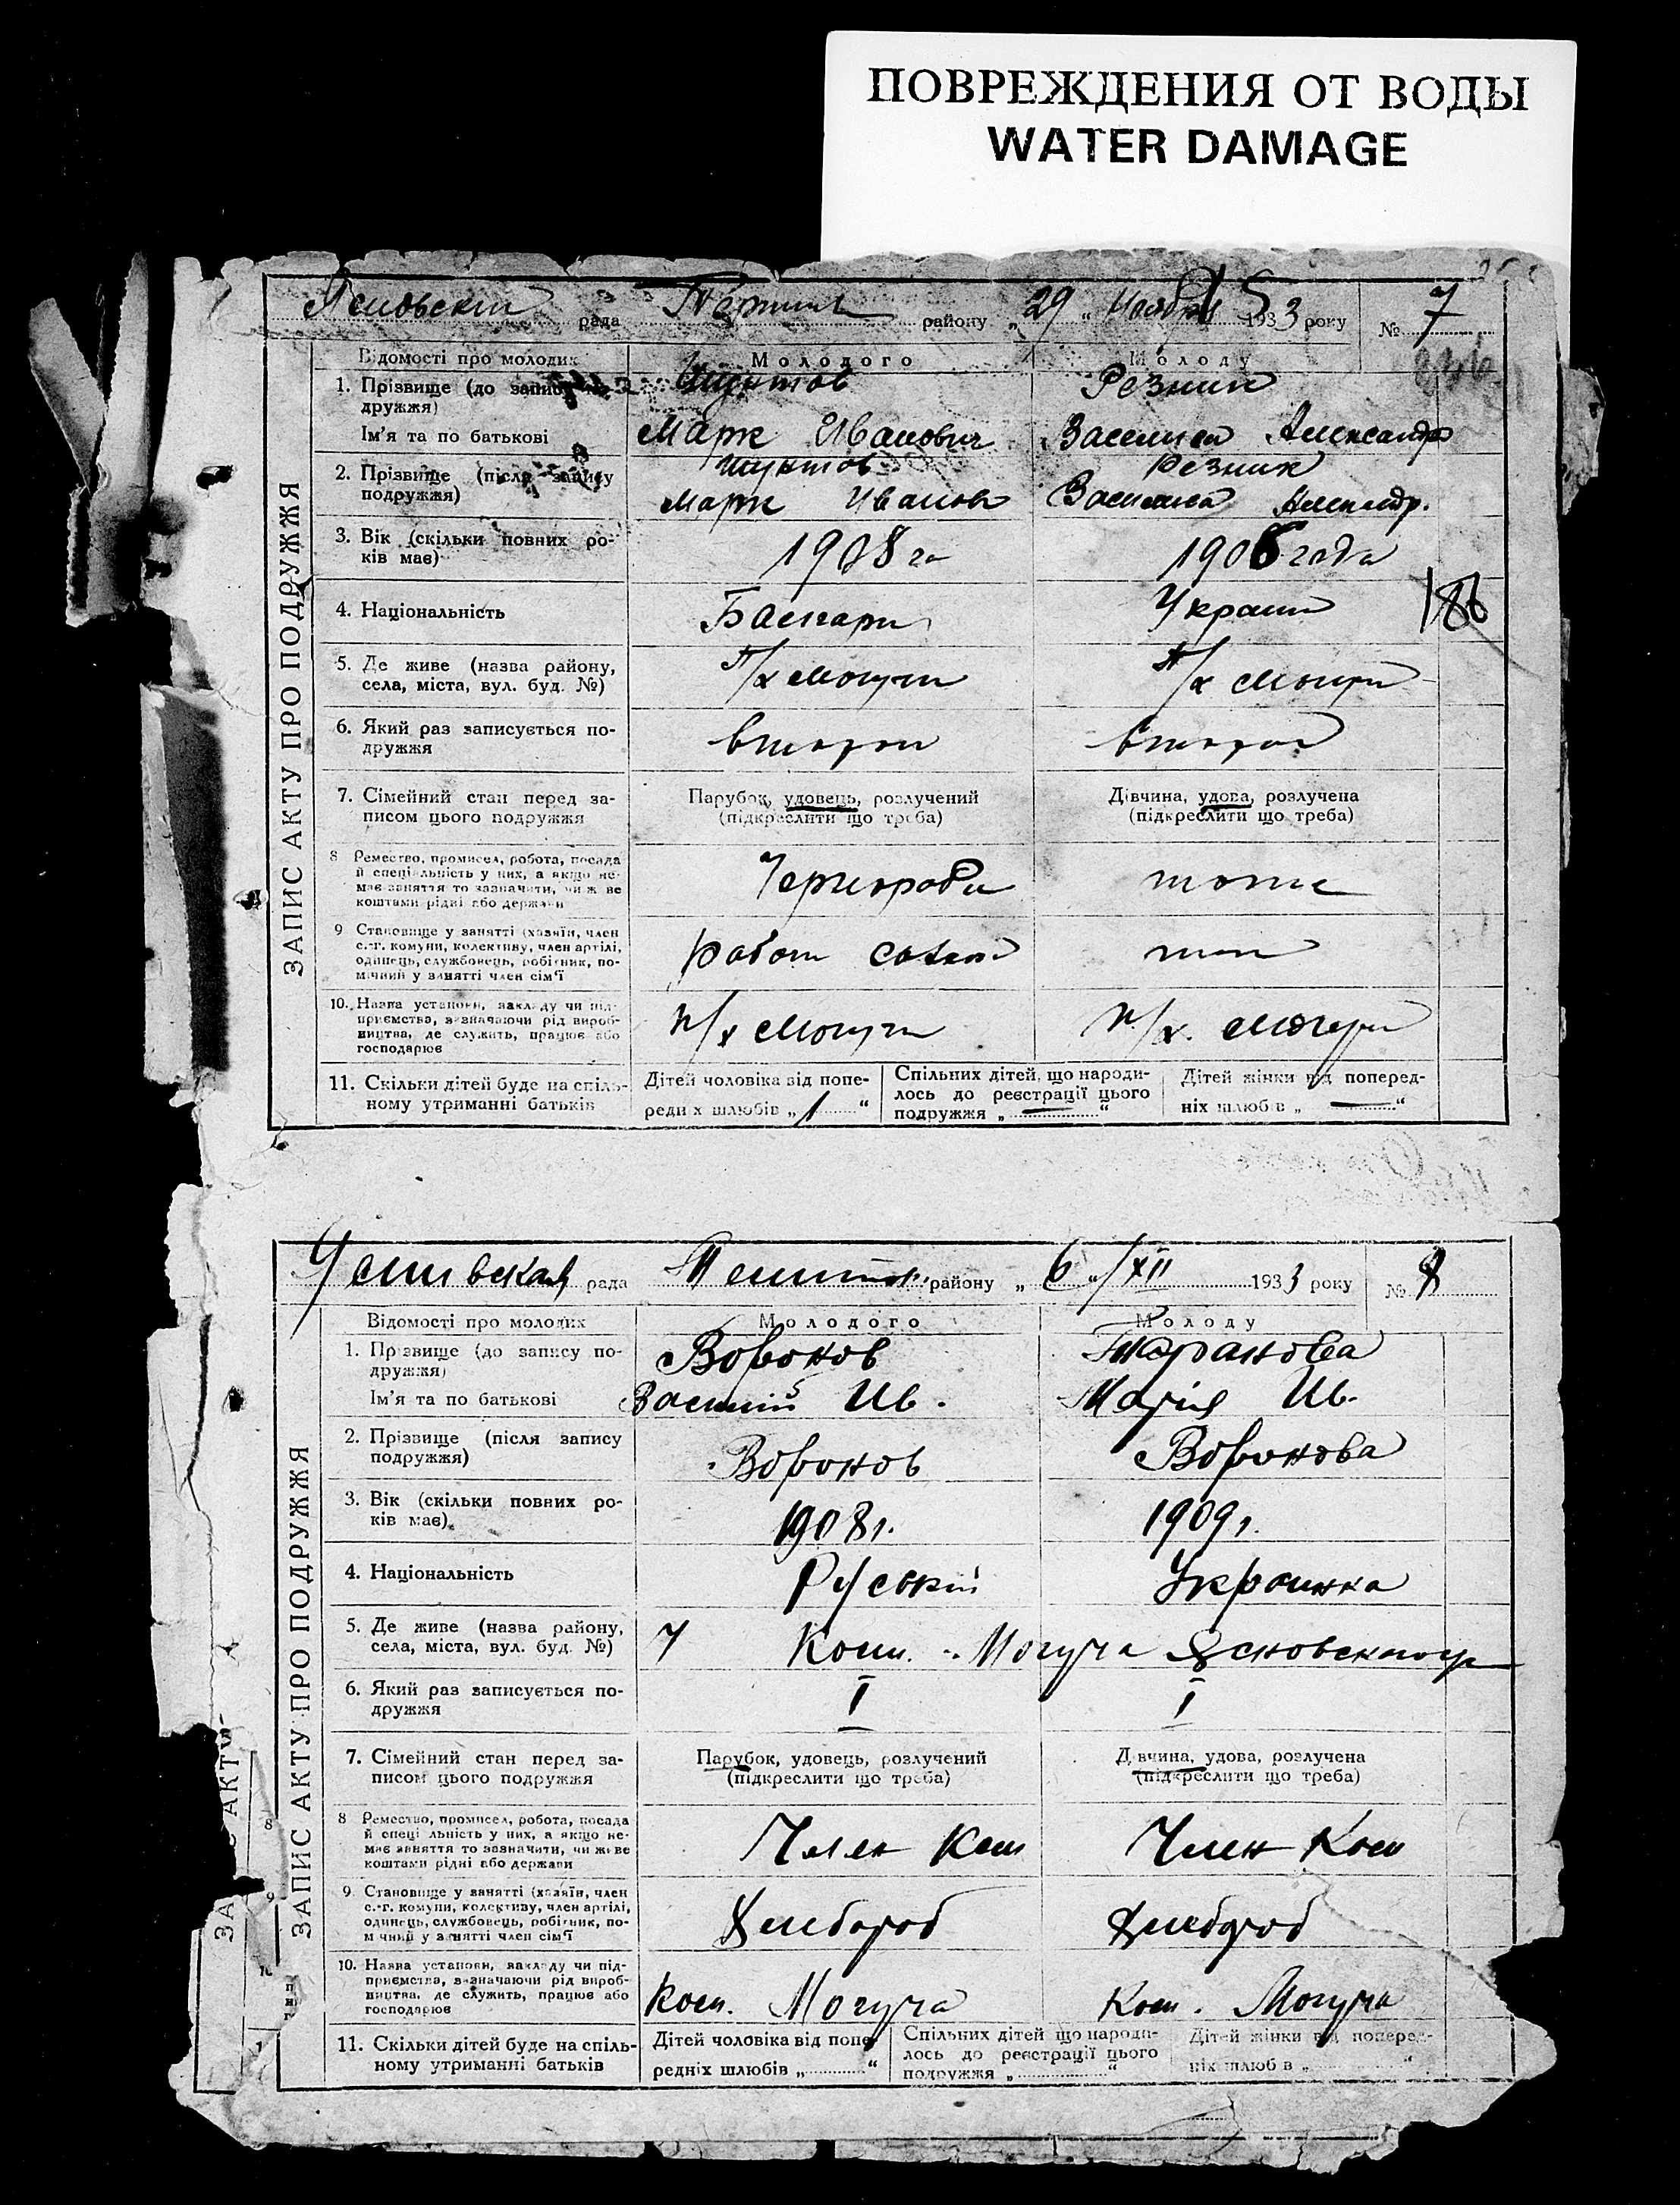 ПОВРЕЖДЕНИЯ ОТ ВОДЫ
WATER DAMAGE
рада району „29“ Ноября 1933 року № 7
Відомості про молодих Молодого Молоду
1. Прізвище (до запису подружжя) Шунтов Резник
Ім'я та по батькові Марк Иванович
2. Прізвище (після запису подружжя) Шунтов Резник
Марк Иванов
3. Вік (скільки повних років має) 1908 г 1906 года
4. Національність Украин
186
5. Де живе (назва району, села, міста, вул. буд. №) п/х Могучи п/х
6. Який раз записується подружжя второй второй
7. Сімейний стан перед записом цього подружжя Парубок, удовець, розлучений (підкреслити що треба) Дівчина, удова, розлучена (підкреслити що треба)
8 Ремество, промисел, робота, посада й спеціальність у них, а якщо немає заняття то зазначити, чи живе коштами рідні або держави Чернораб тоже
9 Становище у занятті (хазяїн, член с.-г. комуни, колективу, член артілі, одинець, службовець, робітник, помічний у занятті член сім'ї работ
10. Назва установи, закладу чи підприємства, зазначаючи рід виробництва, де служить, працює або господарює п/х Могучи п/х. Могучи
11. Скільки дітей буде на спільному утриманні батьків Дітей чоловіка від попередніх шлюбів „1“ Спільних дітей, що народилось до реєстрації цього подружжя „—“ Дітей жінки від попередніх шлюбів „—“
ЗАПИС АКТУ ПРО ПОДРУЖЖЯ
рада району „6“/XII 1933 року № 8
Відомості про молодих Молодого Молоду
1. Прізвище (до запису подружжя) Воронов
Ім'я та по батькові Василий Ив. Марія Ив.
2. Прізвище (після запису подружжя) Воронов Воронова
3. Вік (скільки повних років має) 1908 г. 1909 г.
4. Національність Руський Украинка
5. Де живе (назва району, села, міста, вул. буд. №) Ком. Могуча
6. Який раз записується подружжя I I
7. Сімейний стан перед записом цього подружжя Парубок, удовець, розлучений (підкреслити що треба) Дівчина, удова, розлучена (підкреслити що треба)
8 Ремество, промисел, робота, посада й спеціальність у них, а якщо немає заняття то зазначити, чи живе коштами рідні або держави Член Ком Член Ком
9 Становище у занятті (хазяїн, член с.-г. комуни, колективу, член артілі, одинець, службовець, робітник, помічний у занятті член сім'ї Хлебороб Хлебороб
10. Назва установи, закладу чи підприємства, зазначаючи рід виробництва, де служить, працює або господарює Ком. Могуча Ком. Могуча
11. Скільки дітей буде на спільному утриманні батьків Дітей чоловіка від попередніх шлюбів „ “ Спільних дітей що народилось до реєстрації цього подружжя „ “ Дітей жінки від попередніх шлюбів „ “
ЗАПИС АКТУ ПРО ПОДРУЖЖЯ